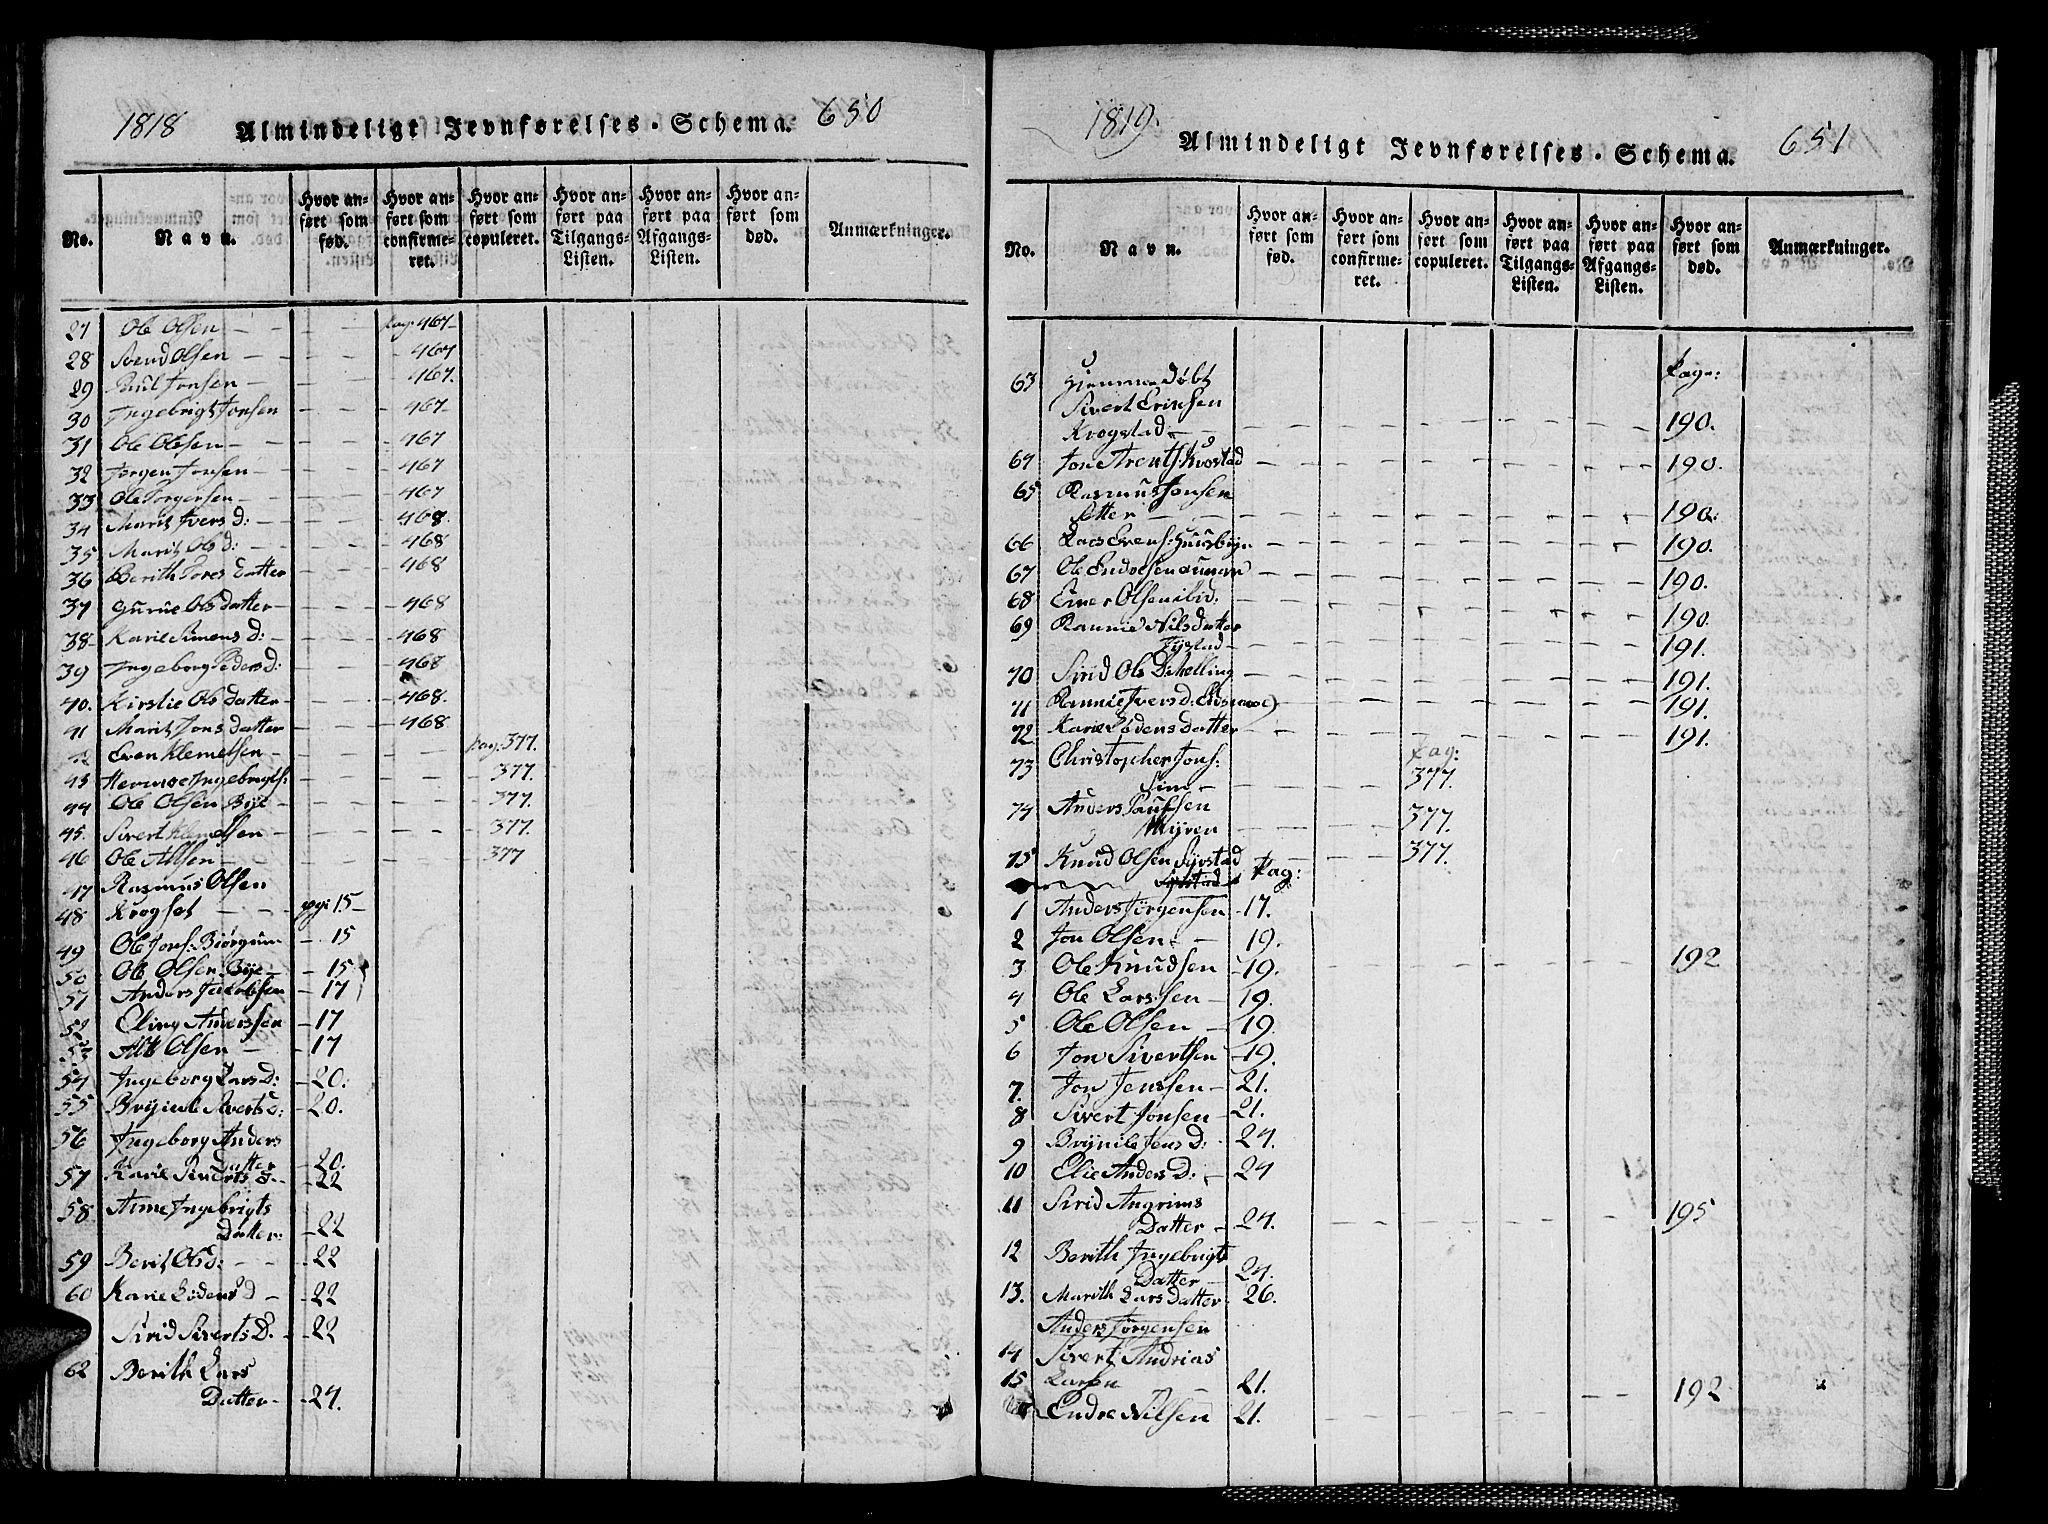 1818 Almindeligt Jevnførelses-Schema. 650
No. Navn. Hvor anført som fød. Hvor anført som confirmeret. Hvor anført som copuleret. Hvor anført paa Tilgangs-Listen. Hvor anført paa Afgangs-Listen. Hvor anført som død. Anmærkninger.
27 Ole Olsen - pag: 467-
28 Svend Olsen - 467
29 Poul Jonsen - 467.
30 Ingebrigt Jonsen 467-
31 Ole Olesen - 467
32 Jørgen Jonsen - 467
33 Ole Jørgensen - 467
34 Marit Ivers d: - 468.
35 Marit Ols d: - 468
36 Berith Tores datter 468
37 Gurue Ols datter - 468
38 Karie Simens d: - 468
39 Ingeborg Peders d: 468
40. Kirstie Ols datter - 468.
41 Marit Jons datter 468
42 Even Klemetsen - pag: 377.
43 Hermoe Ingebrigts: 377.
44 Ole Olsen Bye - 377.
45. Sivert Klemetsen - 377.
46 Ole Allsen - 377
47 Rasmus Olsen
48 Krogset - pag: 15-
49 Ole Jons: Biørgum - 15
50 Ole Olsen Bye - 15
51 Anders Jacobsen - 17
52 Eling Anderssen - 17
53 Alb Olsen - 17
54 Ingeborg Lars D: - 20.
55 Brynile Siverts d: - 20.
56 Ingeborg Anders
Datter - 20.
57 Karie Siverts d. - 22
58 Anne Ingebrigts
Datter: - 22
59 Berit Ols d: - 22
60 Karie Lødens D - 22
Sirid Siverts D. - 22
62 Berith Lars
Datter - 24.
1819. Almindeligt Jevnførelses-Schema. 651
No. Navn. Hvor anført som fød. Hvor anført som confirmeret. Hvor anført som copuleret. Hvor anført paa Tilgangs-Listen. Hvor anført paa Afgangs-Listen. Hvor anført som død. Anmærkninger.
63 Hjemmedøbt pag:
Sivert Erichsen
Krogstad - 190.
64 Jon Arents: Kvostad 190.
65 Rasmus Jonsen
Sætter - 190.
66 Lars Evens: Huusbyn 190.
67 Ole Endresen Aunan 190.
68 Ener Olsen ibid: 190.
69 Rannie Nils datter
Systad - 191.
70 Sirid Ols D: Melling 191.
71 Rannie Ivers d: 191.
72 Karie Lødens datter 191.
73 Christopher Jons: pag:
Sim - 377.
74 Anders Paulsen
Myren 377.
75 Knud Olsen Syrstad 377.
Syrstad pag:
1 Anders Jørgensen - 17.
2 Jon Olsen - 19.
3 Ole Knudsen - 19. 192
4 Ole Larssen - 19.
5 Ole Olsen - 19.
6 Jon Sivertsen - 19.
7. Jon Jenssen - 21.
8 Sivert Jonsen - 21.
9 Brynile Jens D: 24.
10 Elie Anders D: - 24
11 Sirid Angrims
Datter - 24. 195
12 Berith Ingebrigts
Datter - 24.
13. Marith Lars datter - 26.
Anders Jørgensen
14 Sivert Andrias
15 Larsen 21.
Endre Nilsen 21. 192